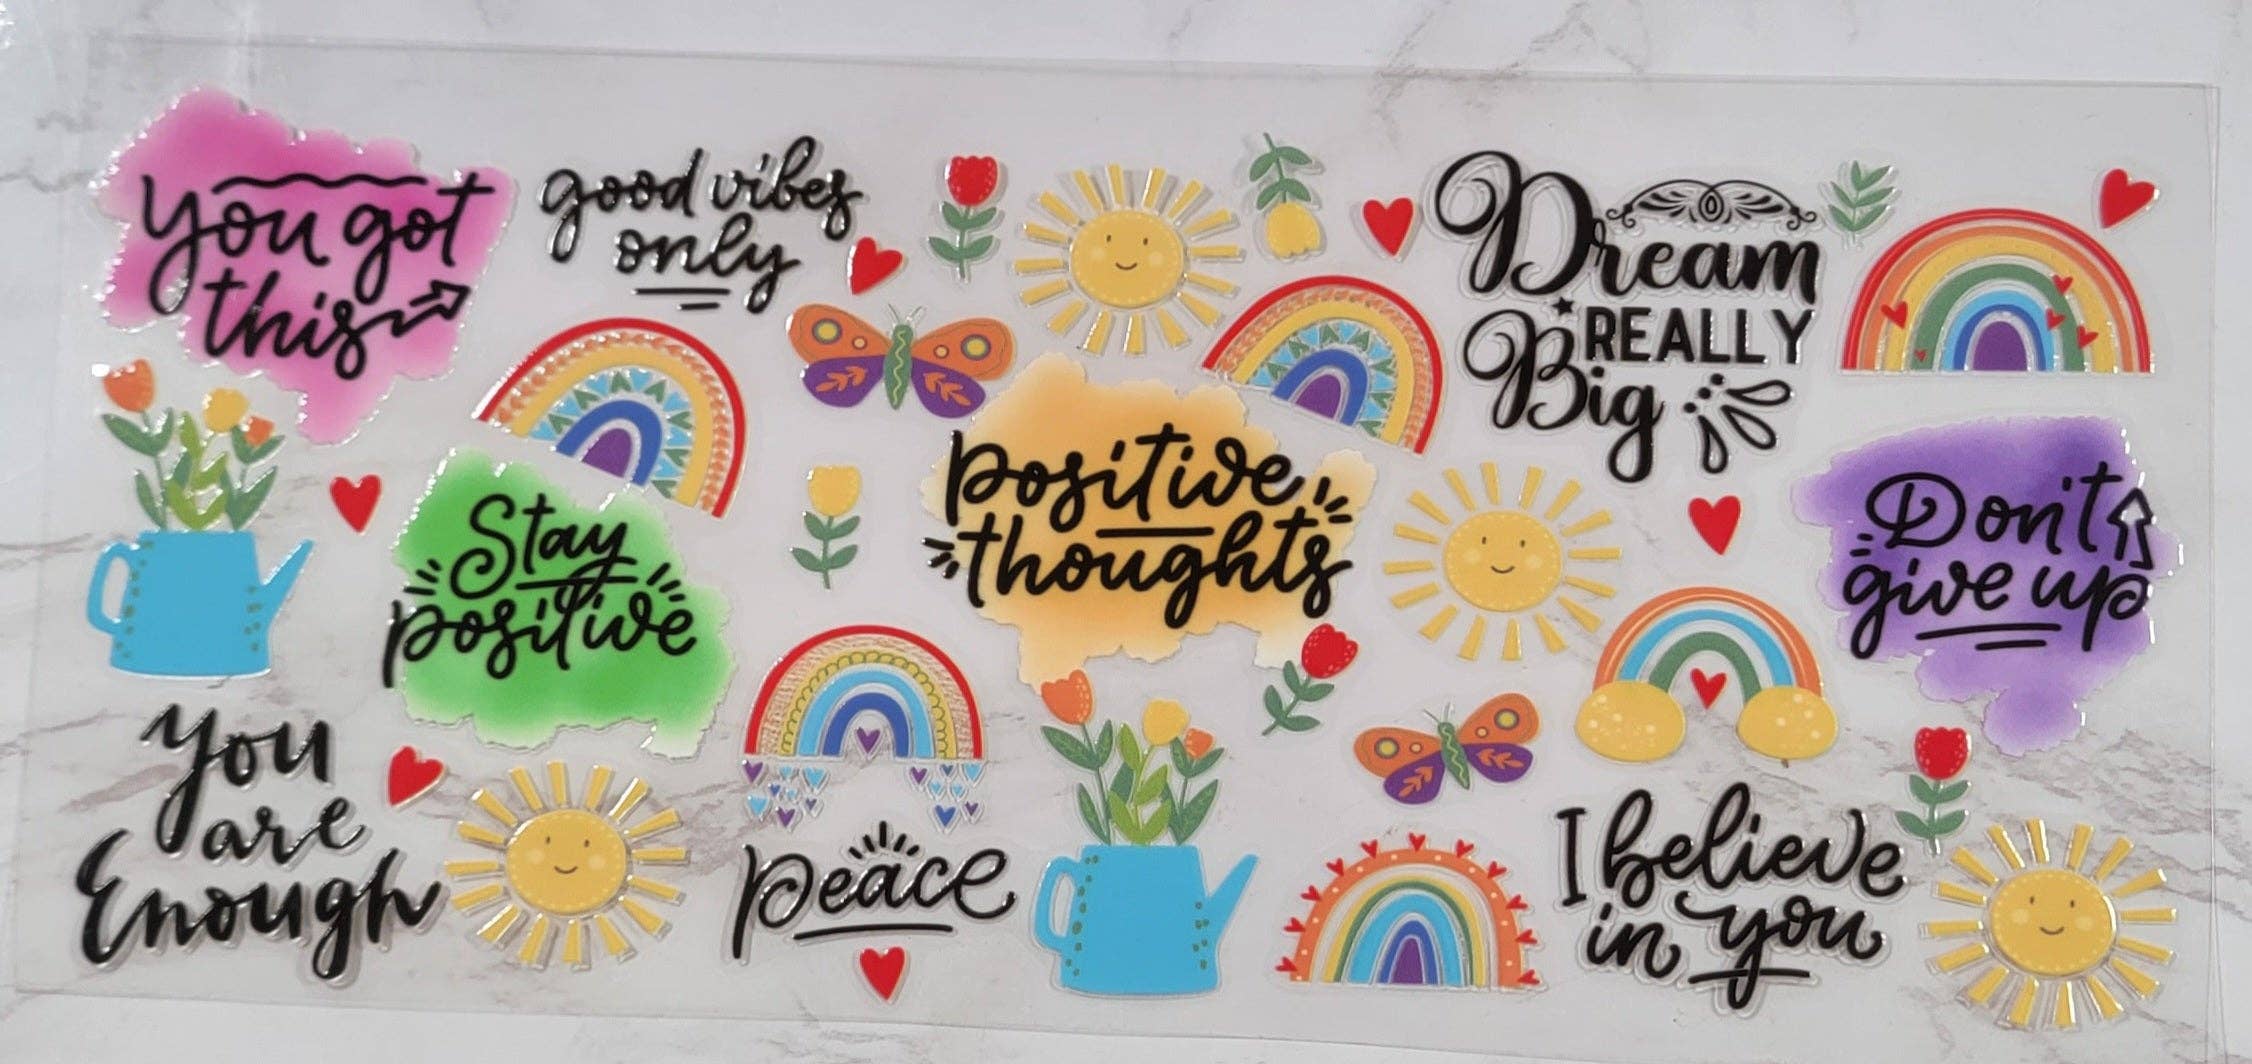 You got
this
good vibes
only
Dream
REALLY
Big
Stay
positive
positive
thoughts
Don't
give up
You
are
Enough
peace
I believe
in you